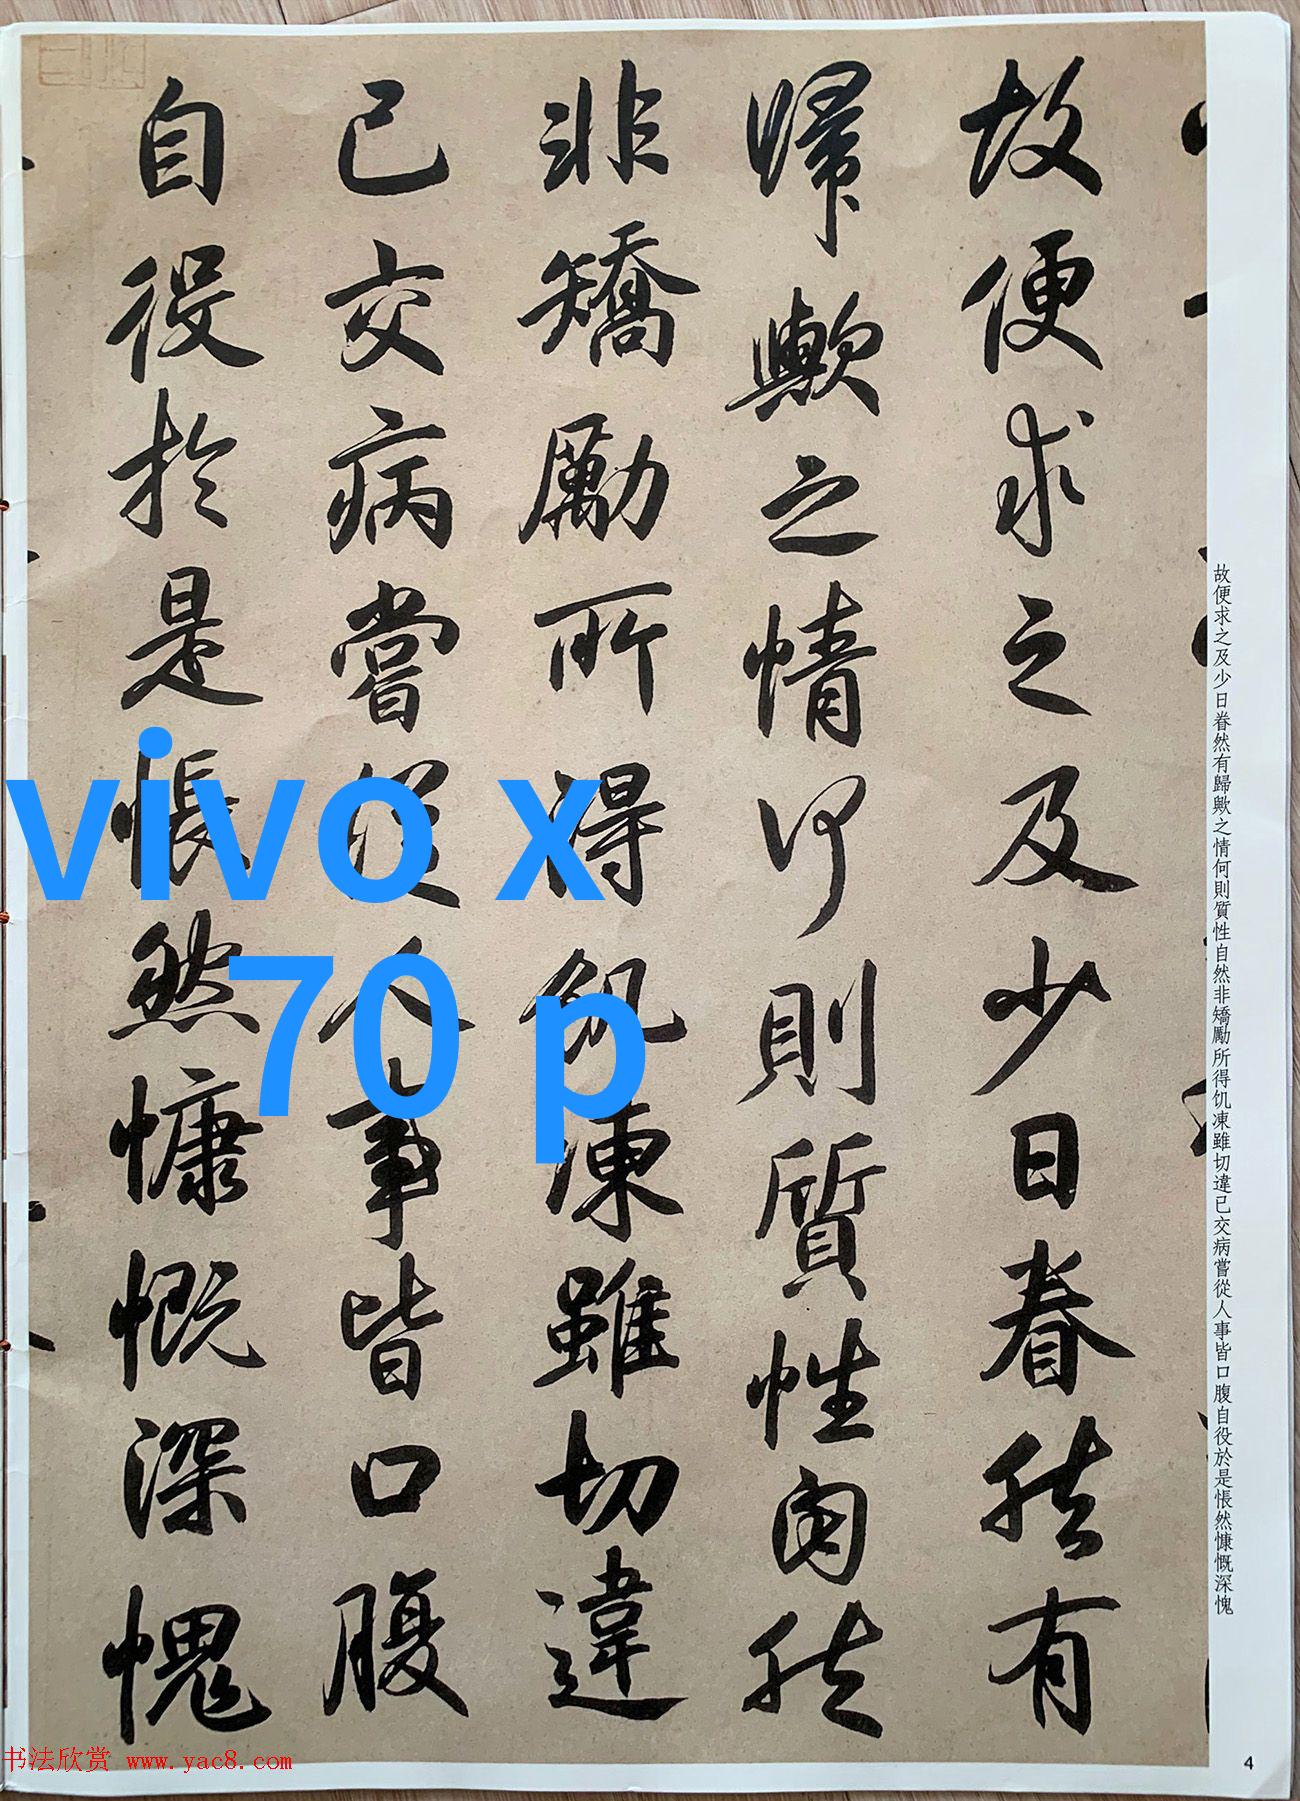 故便求之及少日眷然有
歸歟之情何則質性自然
非矯勵所得飢凍雖切違
已交病嘗從人事皆口腹
自役於是悵然慷慨深愧
故便求之及少日眷然有歸歟之情何則質性自然非矯勵所得饥凍雖切違已交病嘗從人事皆口腹自役於是悵然慷慨深愧
vivo x
70 p
书法欣赏 www.yac8.com
4